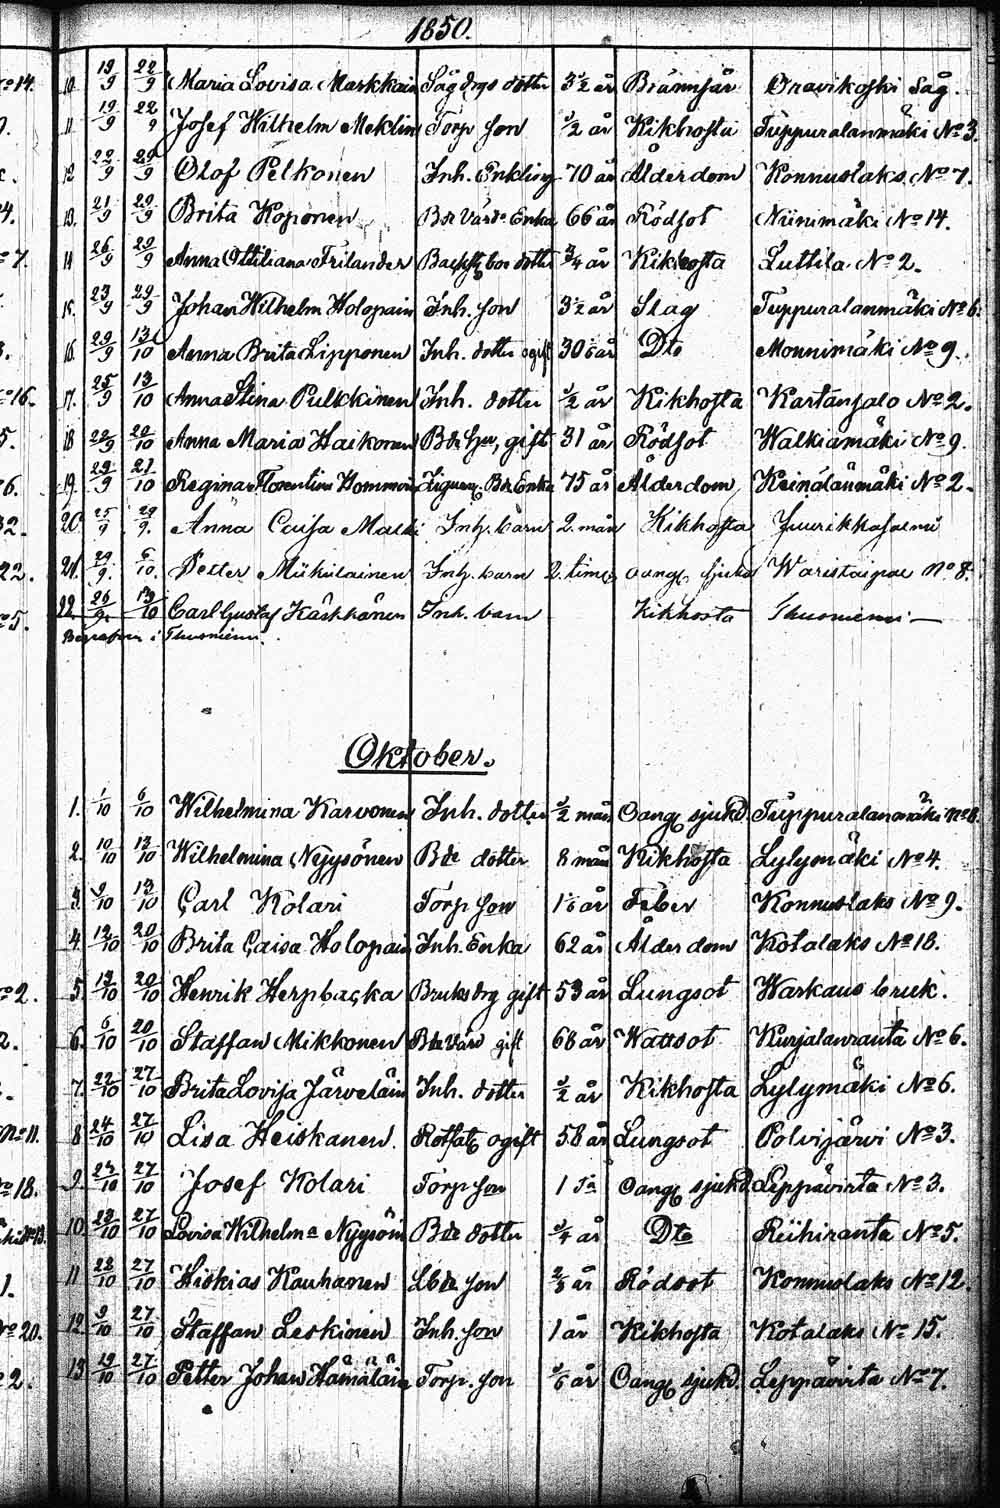 1850.
10. 19/9 22/9 Maria Lovisa Markkain Sågdrgs dotter 3 1/2 år Brännsår Oravikoski Såg.
11. 19/9 22/9 Josef Wilhelm Meklin Torp son 1/2 år Kikhosta Tuppuralanmäki No 3.
12. 22/9 29/9 Olof Pelkonen Inh. Enkling 70 år Ålderdom Konnuslaks No 7.
13. 21/9 29/9 Brita Koponen Bde Värds Enka 66 år Rödsot Niinimäki No 14.
14 26/9 29/9 Anna Ottiliana Frilander dotter 3/4 år Kikhosta Luttila No 2.
15. 23/9 29/9 Johan Wilhelm Holopain Inh. son 3 1/2 år Slag Tuppuralanmäki No 6.
16. 29/9 13/10 Anna Brita Lipponen Inh. dotter ogift 30 år Dto Monnimäki No 9.
17. 25/9 13/10 Anna Stina Pulkkinen Inh. dotter 1/2 år Kikhosta Kartansalo No 2.
18 22/9 20/10 Anna Maria Haikonen Bde gift 31 år Rödsot Walkiamäki No 9.
19. 29/9 27/10 Regina Florentina Hommoin Bde Enka 75 år Ålderdom Keinälänmäki No 2.
20. 25/9 29/9. Anna Caisa Maski Inh. barn 2. mån Kikhosta Juurikkasalmi
21. 29/9. 6/10. Petter Miikulainen Inh. barn 2. tim. oang. sjukd Waristaipal No 8.
22. 26/9. 13/10 Carl Gustaf Kärkkänen Inh. barn Kikhosta Thusniemi —
Begrafven i Thusniemi.
Oktober.
1. 1/10 6/10 Wilhelmina Karvonen Inh. dotter 1/2 mån Oang sjukd. Tuppuralanmäki No 8.
2. 10/10 13/10 Wilhelmina Nyysönen Bde dotter 8 mån Kikhosta Lylymäki No 4.
3. 9/10 13/10 Carl Kolari Torp son 1 år Feber Konnuslaks No 9.
4. 12/10 20/10 Brita Caisa Holopain Inh. Enka 62 år Ålderdom Kotalaks No 18.
5. 13/10 20/10 Henrik Herpbacka Bruksdrg gift 53 år Lungsot Warkaus bruk.
6. 6/10 20/10 Staffan Mikkonen Bde Värd gift 68 år Wattsot Kurjalanranta No 6.
7. 22/10 27/10 Brita Lovisa Järveläin Inh. dotter 1/2 år Kikhosta Lylymäki No 6.
8 24/10 27/10 Lisa Heiskanen. Rotfat ogift 58 år Lungsot Polvijärvi No 3.
9. 24/10 27/10 Josef Kolari Torp son 1 Oang sjukd. Leppävirta No 3.
10. 23/10 27/10 Lovisa Wilhelma Nyysöin Bde dotter 3/4 år Dto Riihiranta No 5.
11 22/10 27/10 Hiskias Kauhanen Lbde son år Rödsot Konnuslaks No 12.
12. 9/10 27/10 Staffan Leskinen Inh. son 1 år Kikhosta Kotalaks No 15.
13 19/10 27/10 Petter Johan Hämäläin Torp. son 1/6 år Oang sjukd. Leppävirta No 7.